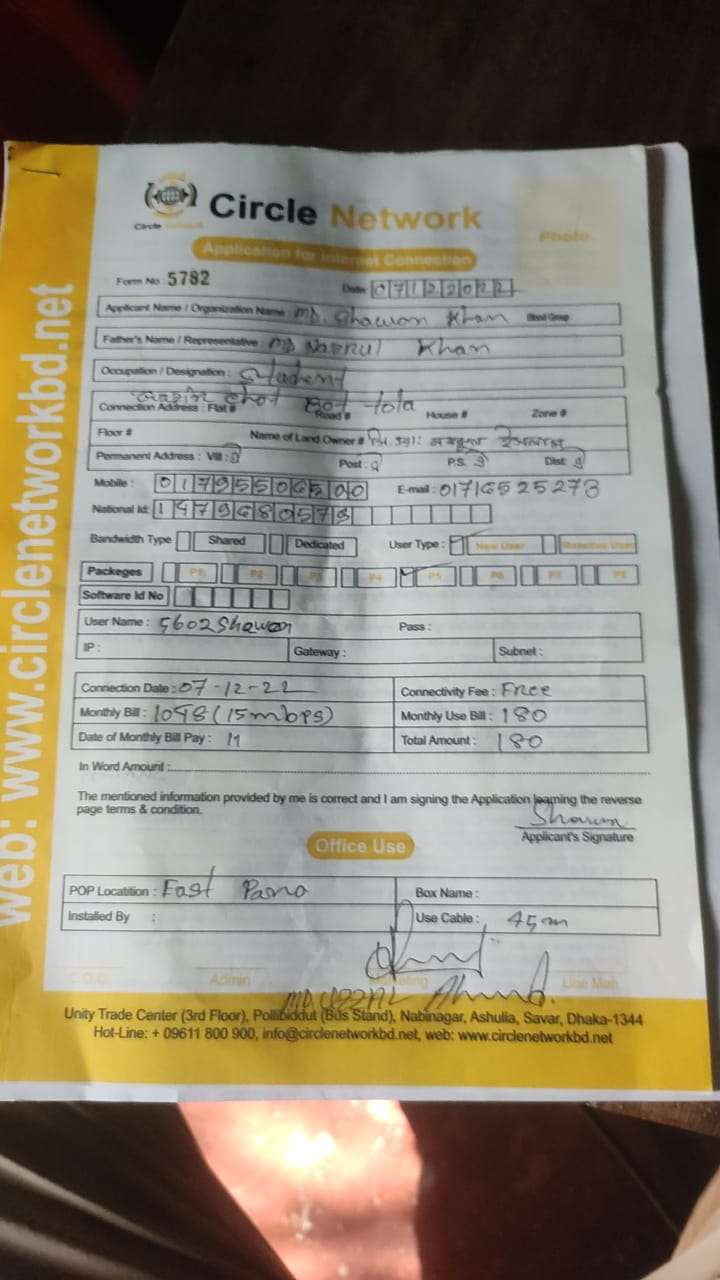 Circle Network
Circle Network
Application for Internet Connection
Photo
Form No 5782
Date 07122022
Applicant Name / Organization Name : MD. Shawon Khan Blood Group
Father's Name / Representative : MD Khan
Occupation / Designation : Student
Bot tola
Connection Address : Flat # Road # House # Zone #
Floor # Name of Land Owner #
Permanent Address : Vill : Post : P.S. Dist
Mobile : E-mail : 01716525273
National Id:
Bandwidth Type Shared Dedicated User Type : New User Reactive User
Packeges P1 P2 P3 P4 P5 P6 P7 P8
Software Id No
User Name : 5602Shawon Pass :
IP : Gateway : Subnet :
Connection Date : 07-12-22 Connectivity Fee : Free
Monthly Bill : 1048 (15mbps) Monthly Use Bill : 180
Date of Monthly Bill Pay : Total Amount : 180
In Word Amount :
The mentioned information provided by me is correct and I am signing the Application learning the reverse
page terms & condition.
Shawon
Applicant's Signature
Office Use
POP Locatition : East Box Name :
Installed By : Use Cable : 45m
C.O.O Admin Marketing Line Man
MD. Ahmed.
Unity Trade Center (3rd Floor), Pollibiddut (Bus Stand), Nabinagar, Ashulia, Savar, Dhaka-1344
Hot-Line: + 09611 800 900, info@circlenetworkbd.net, web: www.circlenetworkbd.net
web: www.circlenetworkbd.net